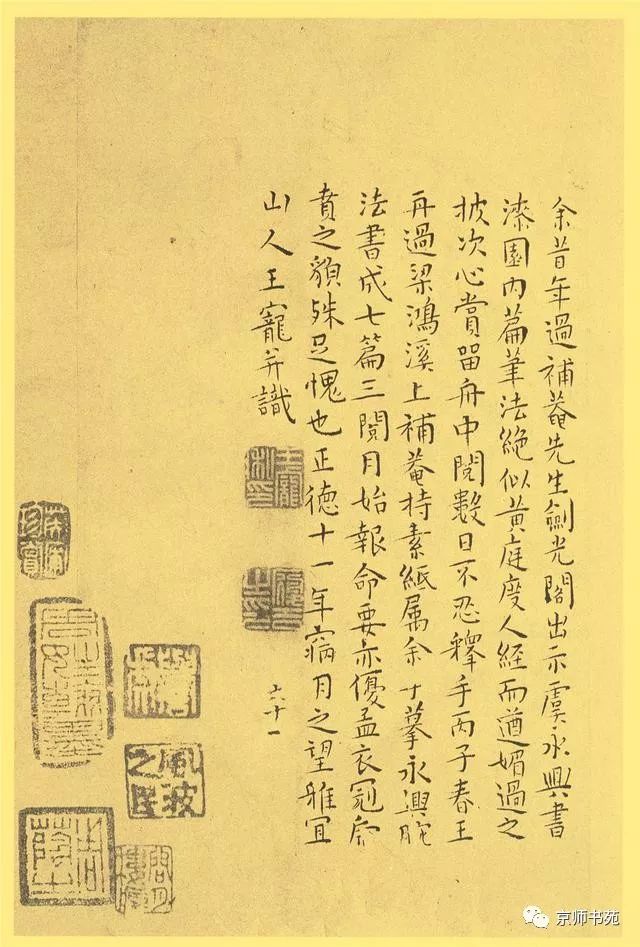 余昔年過補菴先生劍光閣出示虞永興書
漆園内篇筆法絶似黄庭度人經而遒媚過之
披次心賞留舟中閲數日不忍釋手丙子春王
再過梁鴻溪上補菴持素紙属余寸摹永興腕
法書成七篇三閲月始報命要亦優孟衣冠虎
賁之貌殊足愧也正德十一年寎月之望雅宜
山人王寵并識
王寵
六十一
風波之民
京师书苑